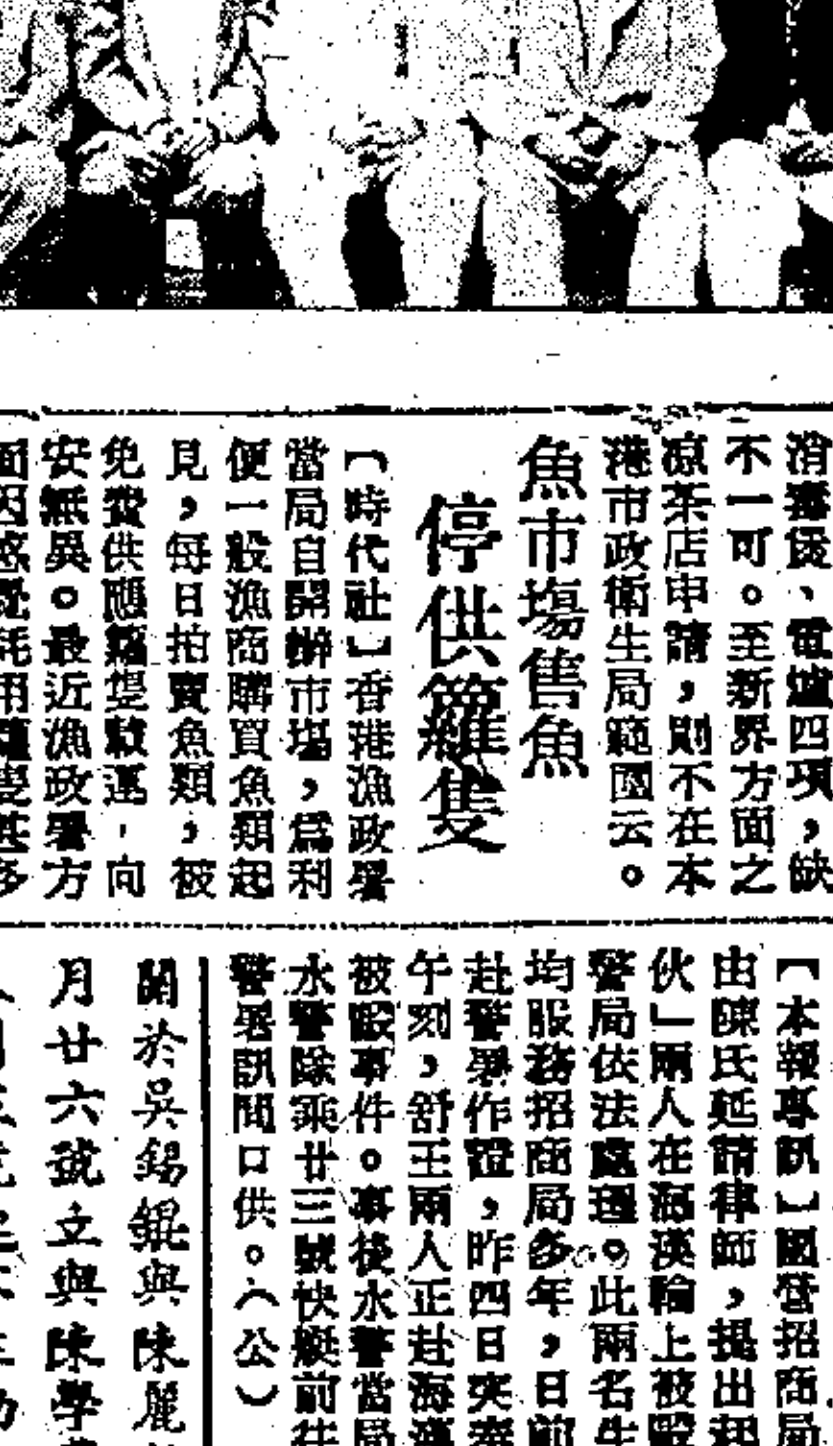 消毒後、電爐四項，缺
不一可。至新界方面之
凉茶店申請，則不在本
港市政衛生局範圍云。
魚市塲售魚
停供籮隻
【時代社】香港漁政署
當局自開辦市塲，爲利
便一般漁商購買魚類起
見，每日拍賣魚類，被
免費供應籮隻載運，向
安無異。最近漁政署方
面因感覺耗用籮隻甚多
【本報專訊】國營招商局
由陳氏延請律師，提出起
伙」兩人在海漢輪上被毆
警局依法處理。此兩名生
均服務招商局多年，日前
赴警署作證，昨四日突奉
午刻，舒王兩人正赴海漢
被毆事件。事後水警當局
水警隊乘廿三號快艇前往
警署訊問口供。（公）
關於吳錫錕與陳麗
月廿六號立與陳學